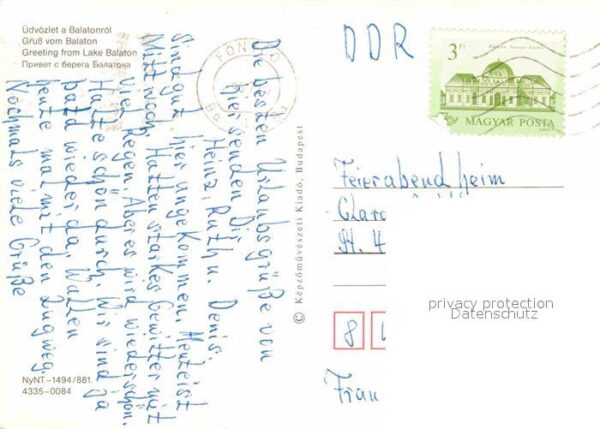 Üdvözlet a Balatonról
Gruß vom Balaton
Greeting from Lake Balaton
Привет с берега Балатона
Die besten Urlaubsgrüße von
hier senden Dir
Heinz, Ruth u. Denis.
Sind gut hier angekommen.
Mittwoch. Hatten starkes Gewitter mit
viel Regen. Aber es wird wieder schön.
Haltet schön durch. Wir sind ja
bald wieder da. Wollen
heute mal mit den
Nochmals viele Grüße
NyNT.–1494/881.
4335–0084
© Képzőművészeti Kiadó, Budapest
FONYÓD
DDR
3 Ft
MAGYAR POSTA
Feierabendheim
Clara
St. 4
8
Frau
privacy protection
Datenschutz